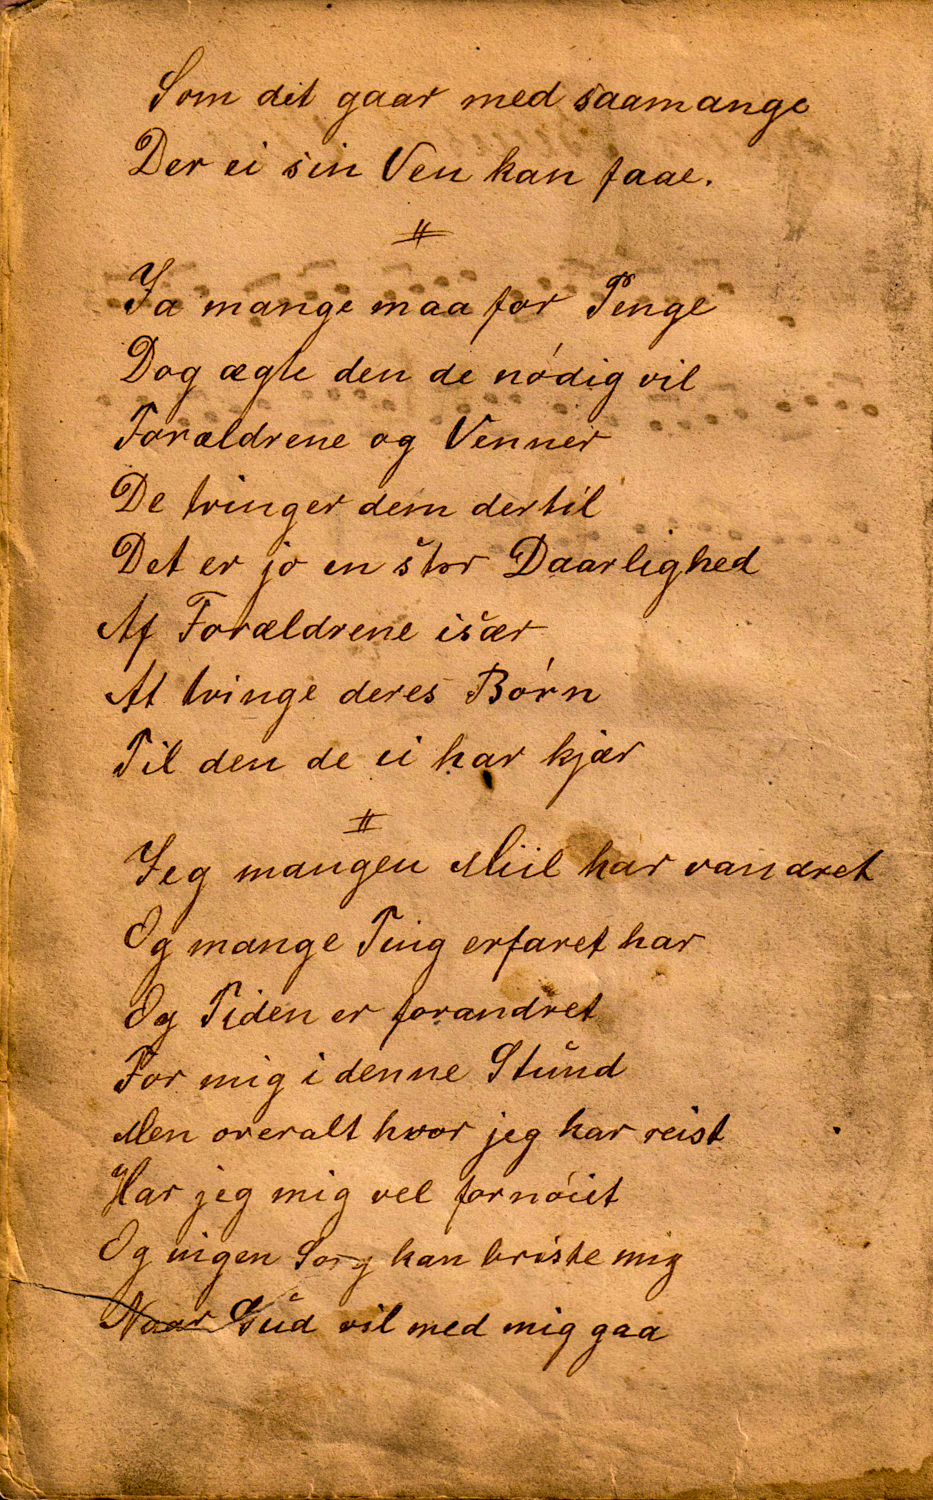 Som det gaar med saamange
Der ei sin Ven kan faae.
Ja mange maa for Penge
Dog ægte den de nódig vil
Forældrene og Venner
De tvinger dem dertil
Det er jo en stor Daarlighed
Af Forældrene især
At tvinge deres Bórn
Til den de ei har kjær
Jeg mangen Miil har vandret
Og mange Ting erfaret har
Og Tiden er forandret
For mig i denne Stŭnd
Men overalt hvor jeg har reist
Har jeg mig vel fornóiet
Og ingen Sorg kan briste mig
Naar Gŭd vil med mig gaa